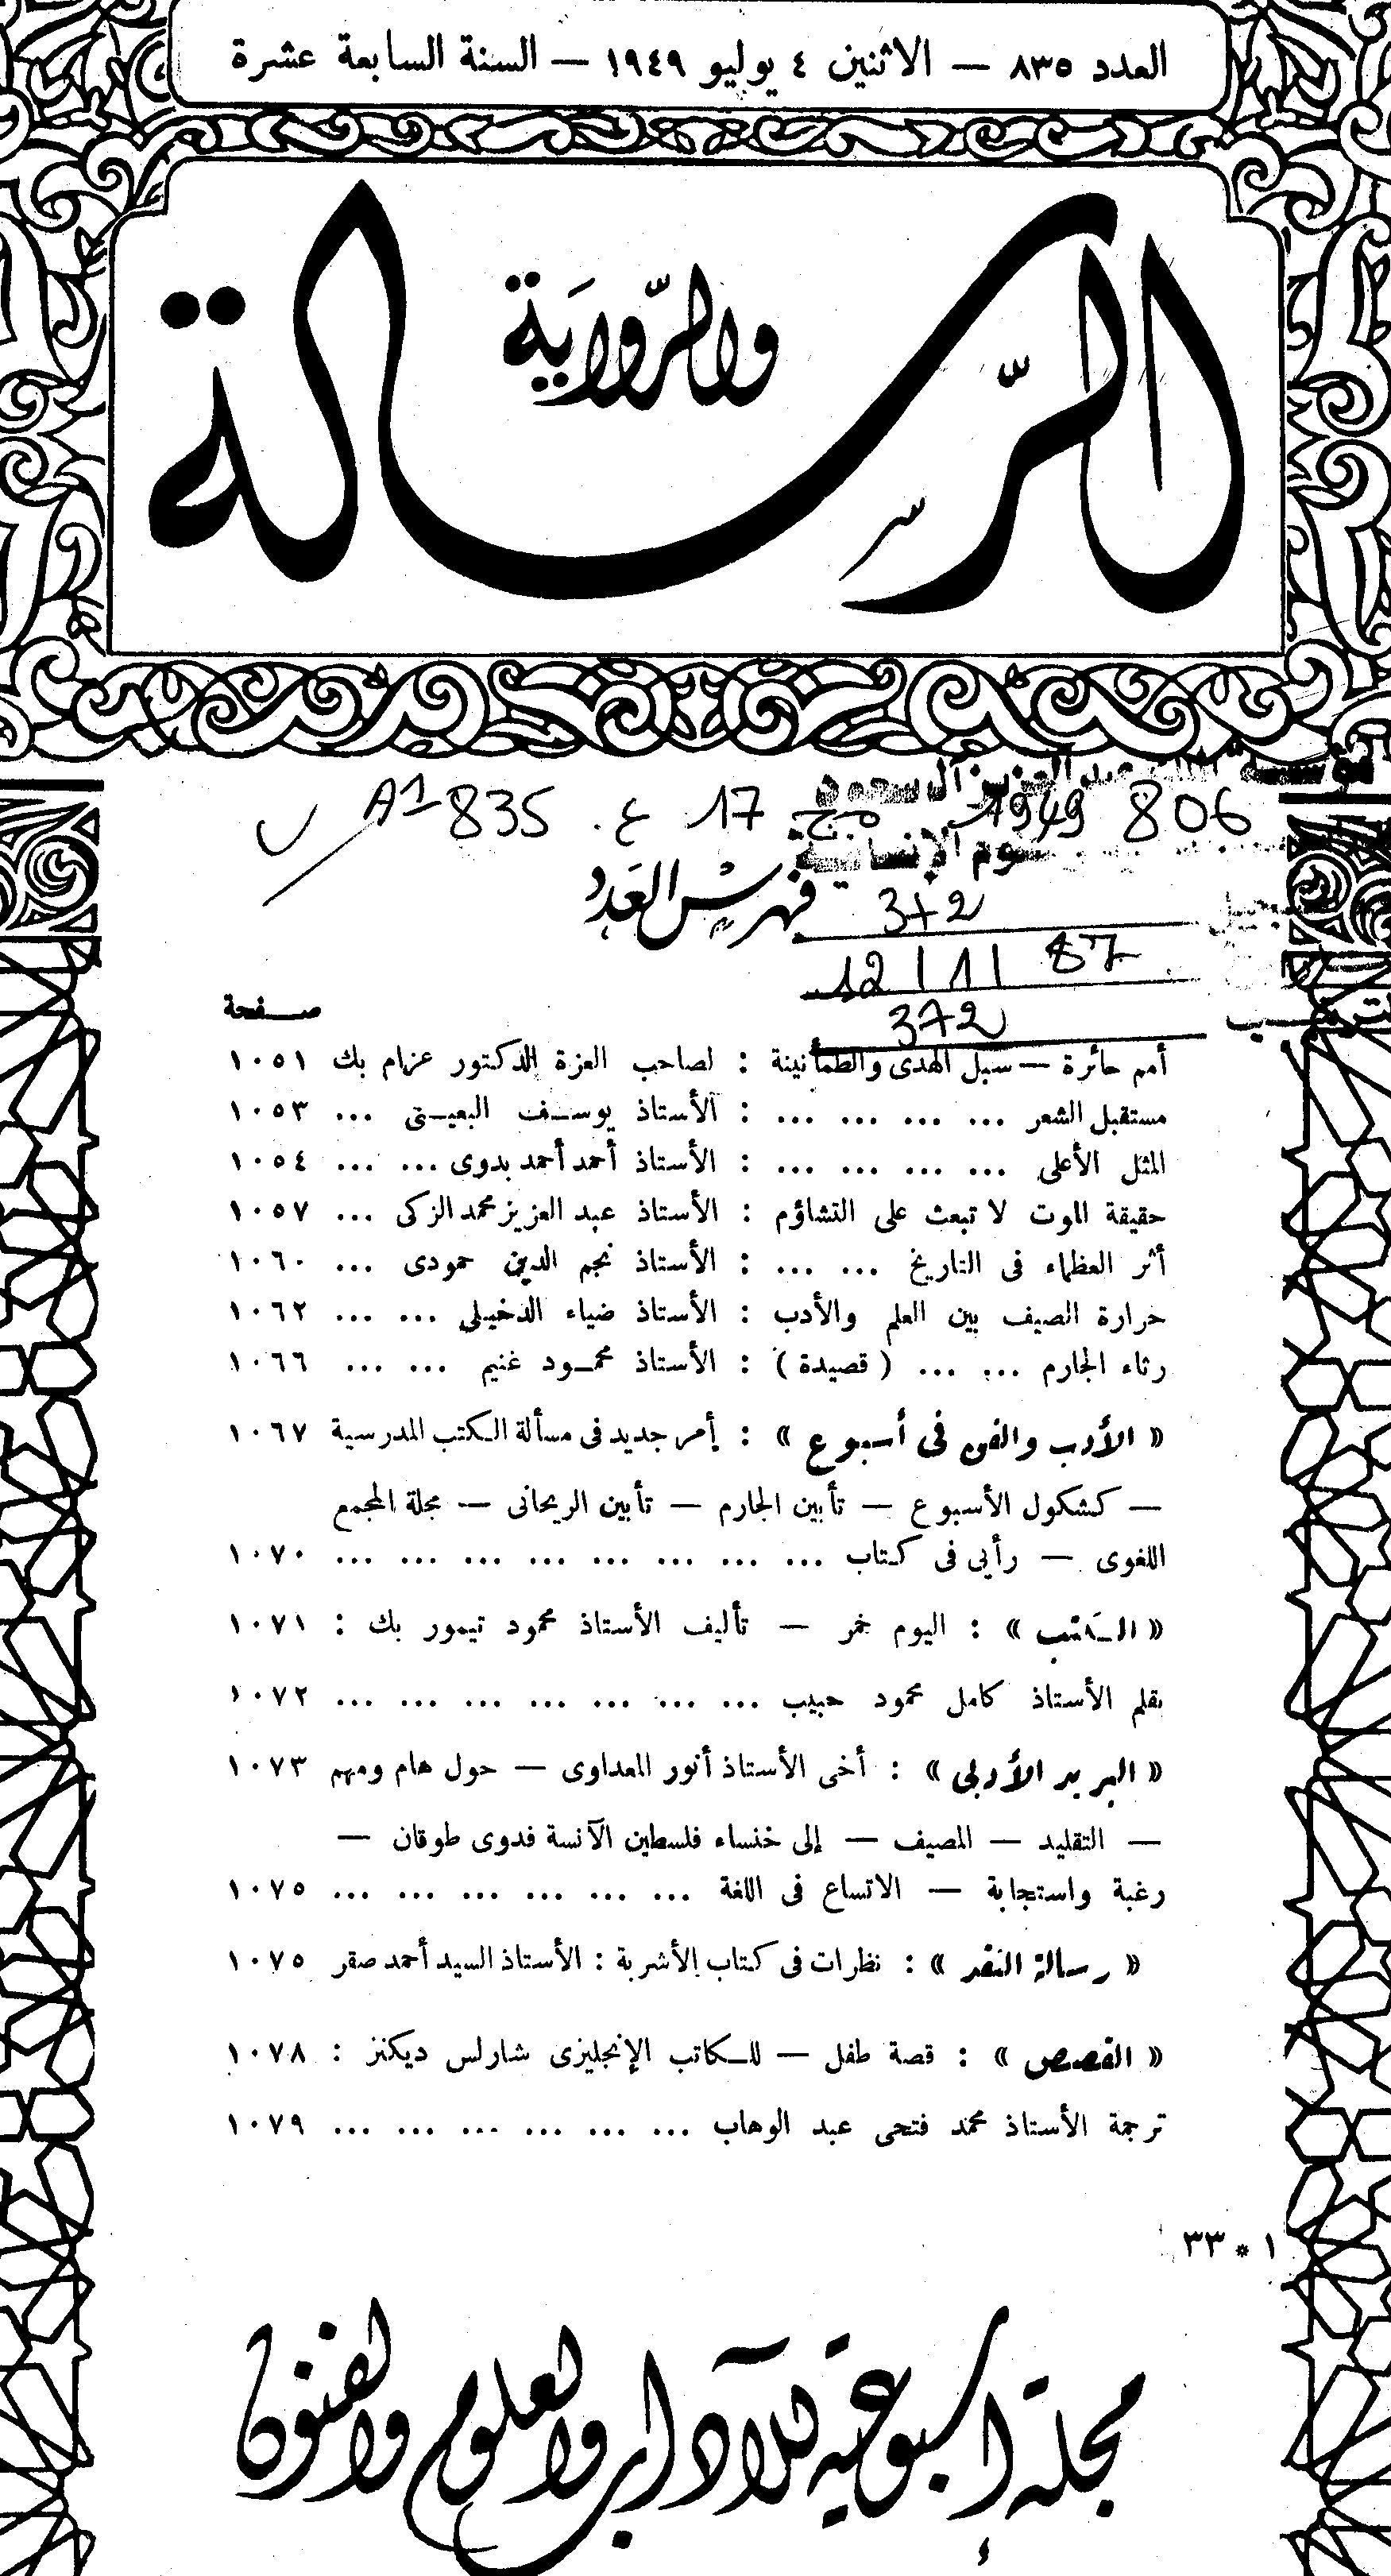 العدد ٨٣٥ — الاثنين ٤ يوليو ١٩٤٩ — السنة السابعة عشرة
الرسالة
والرواية
آل سعود
A1 835 ع. 17 مج 1949 806
الإنسانية
فهرس العدد
372
12 | 11 | 87
372
صفحة
أمم حائرة — سبل الهدى والطمأنينة : لصاحب العزة الدكتور عزام بك ١٠٥١
مستقبل الشعر ... ... ... ... : الأستاذ يوسف البعينى ... ١٠٥٣
المثل الأعلى ... ... ... ... : الأستاذ أحمد أحمد بدوى ... ... ١٠٥٤
حقيقة الموت لا تبعث على التشاؤم : الأستاذ عبد العزيز محمد الزكى ... ١٠٥٧
أثر العظماء فى التاريخ ... ... : الأستاذ نجم الدين حمودى ... ١٠٦٠
حرارة الصيف بين العلم والأدب : الأستاذ ضياء الدخيلى ... ... ١٠٦٢
رثاء الجارم ... ... ( قصيدة ) : الأستاذ محمـود غنيم ... ... ١٠٦٦
« الأدب والفن فى أسبوع » : أمر جديد فى مسألة الكتب المدرسية ١٠٦٧
— كشكول الأسبوع — تأبين الجارم — تأبين الريحانى — مجلة المجمع
اللغوى — رأيى فى كتاب ... ... ... ... ... ... ... ... ١٠٧٠
« الكتب » : اليوم خمر — تأليف الأستاذ محمود تيمور بك : ١٠٧١
بقلم الأستاذ كامل محمود حبيب ... ... ... ... ... ... ... ١٠٧٢
« البريد الأدبى » : أخى الأستاذ أنور المعداوى — حول هام ومهم ١٠٧٣
— التقليد — المصيف — إلى خنساء فلسطين الآنسة فدوى طوقان —
رغبة واستجابة — الاتساع فى اللغة ... ... ... ... ... ... ١٠٧٥
« رسالة النقد » : نظرات فى كتاب الأشربة : الأستاذ السيد أحمد صقر ١٠٧٥
« القصص » : قصة طفل — للكاتب الإنجليزى شارلس ديكنز : ١٠٧٨
ترجمة الأستاذ محمد فتحى عبد الوهاب ... ... ... ... ... ... ١٠٧٩
١ * ٣٣
مجلة أسبوعية للآداب والعلوم والفنون